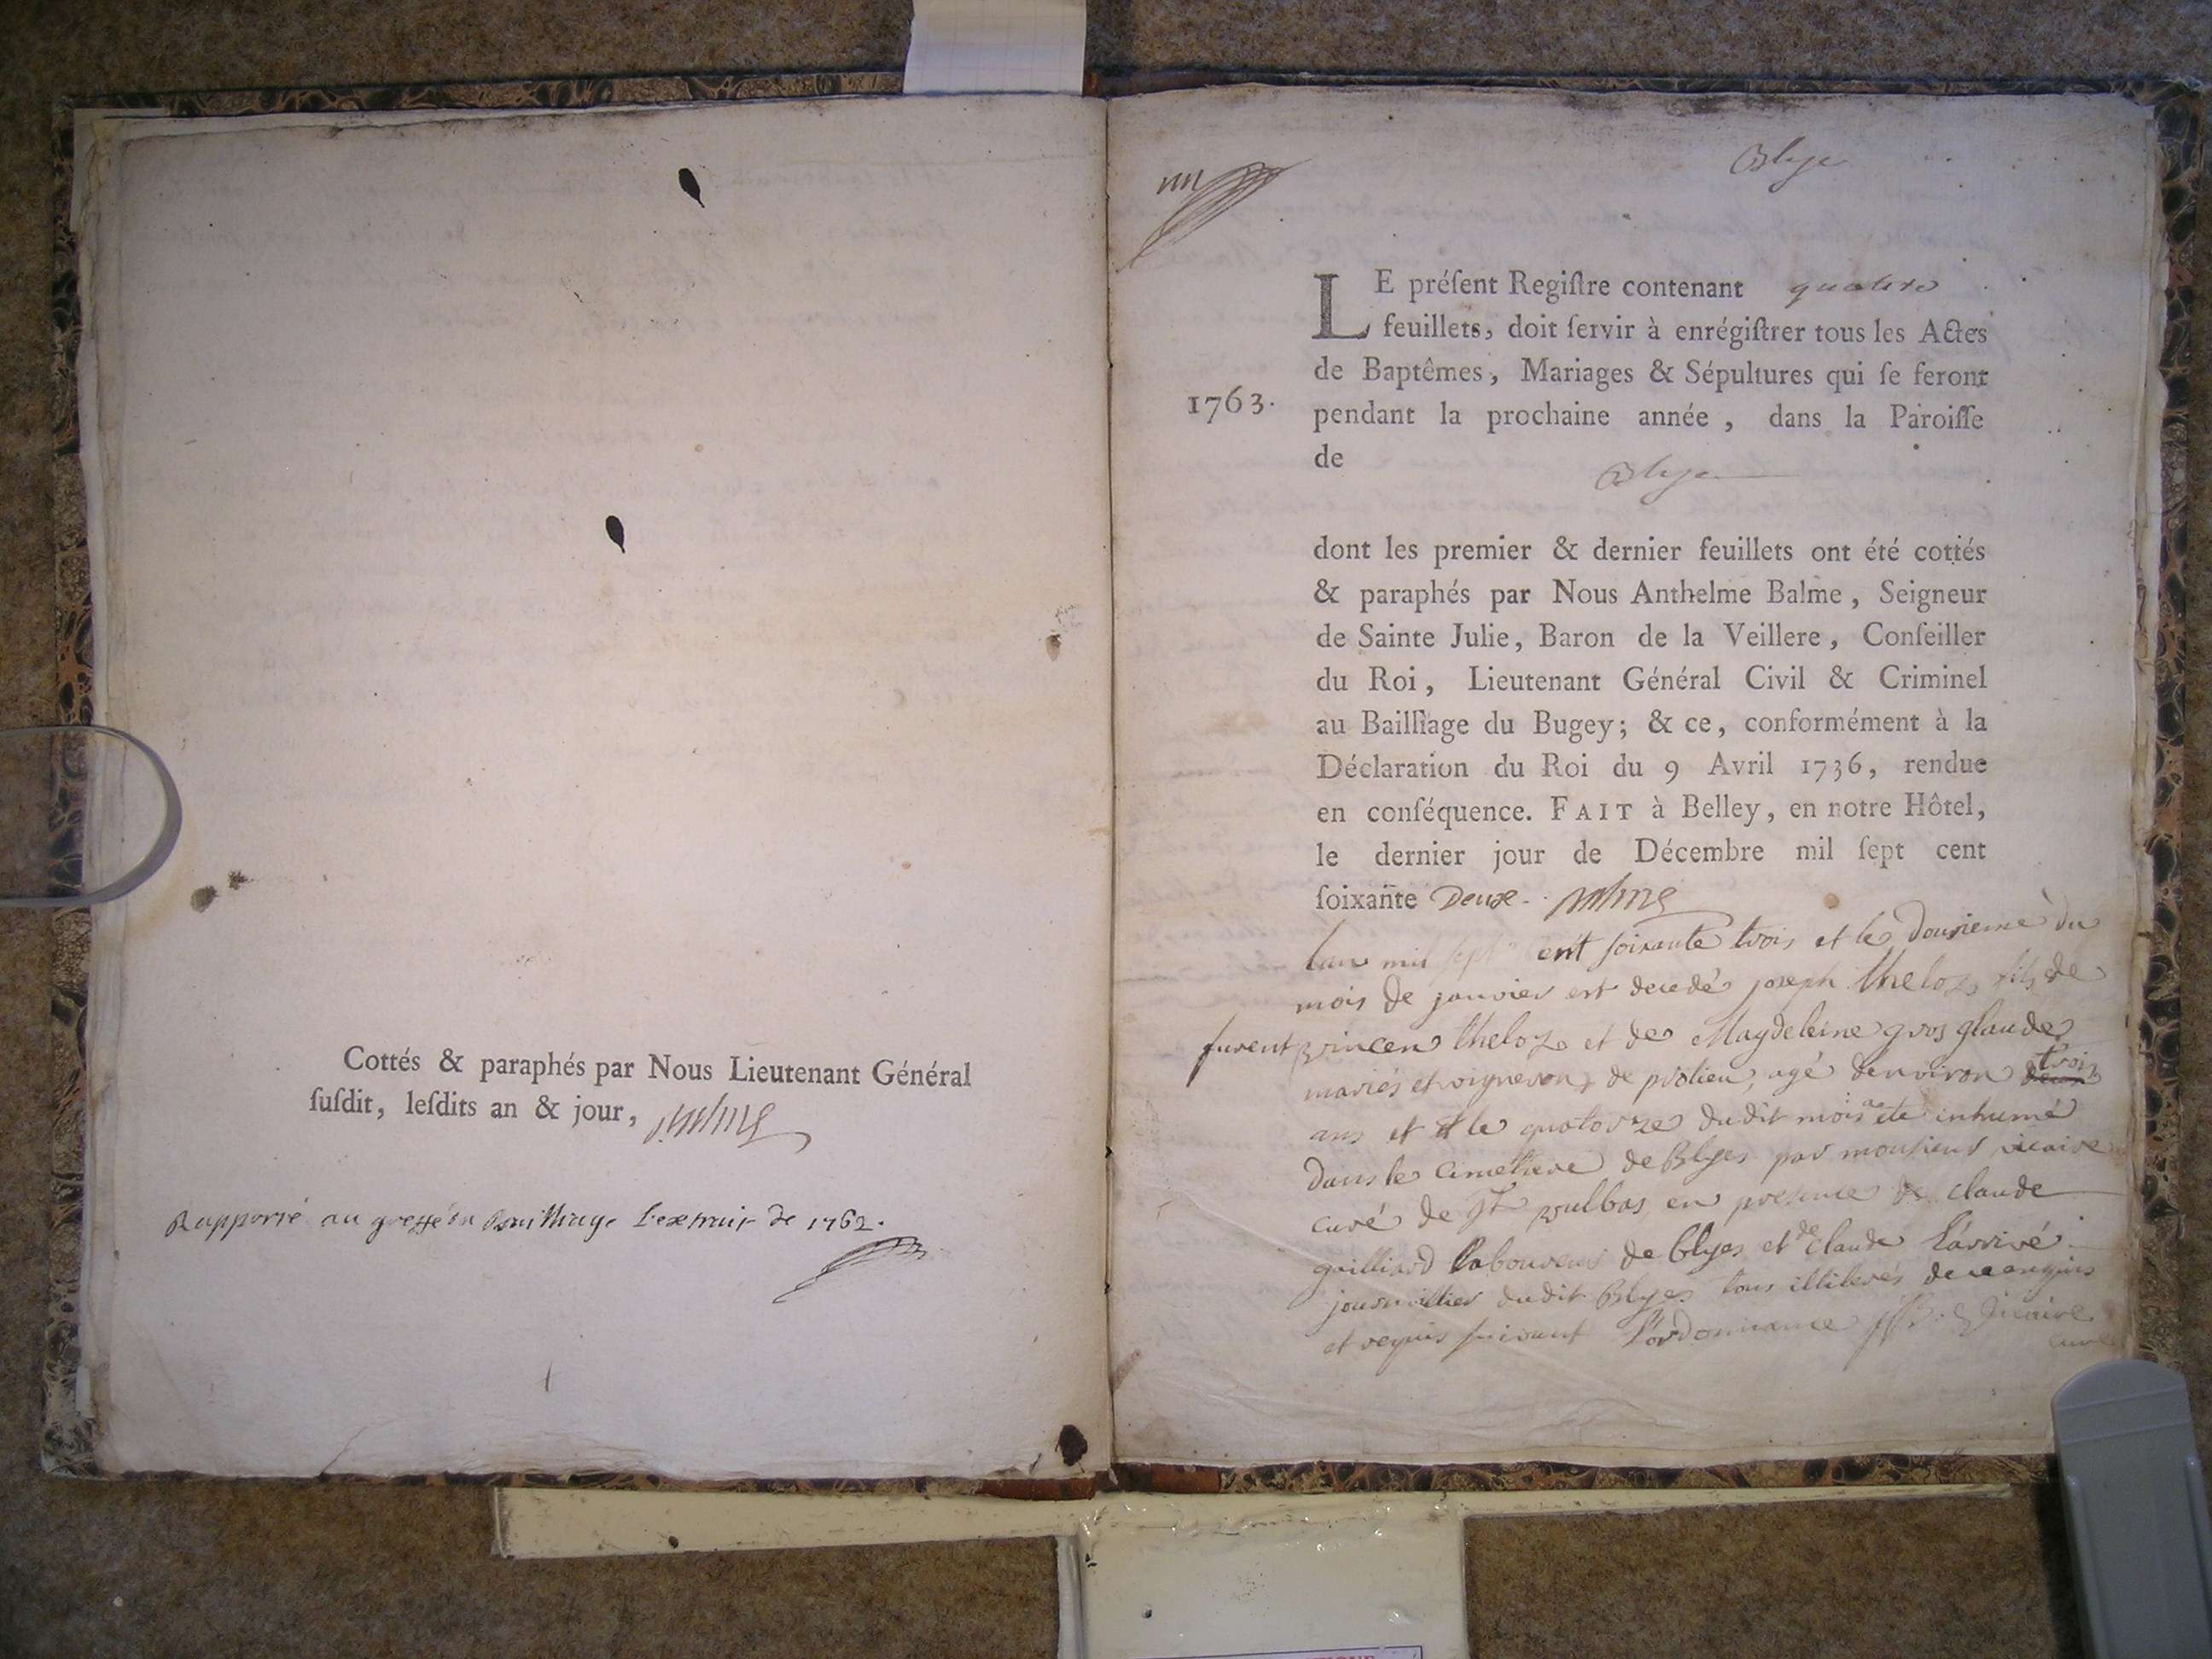 Cottés & paraphés par Nous Lieutenant Général
ſuſdit, leſdits an & jour,
Rapporté au greffe du Bailliage l'extrait de 1762.
Blye
LE préſent Regiſtre contenant quatre
feuillets, doit ſervir à enrégiſtrer tous les Actes
de Baptêmes, Mariages & Sépultures qui ſe feront
1763. pendant la prochaine année, dans la Paroiſſe
de Blye
dont les premier & dernier feuillets ont été cottés
& paraphés par Nous Anthelme Balme, Seigneur
de Sainte Julie, Baron de la Veillere, Conſeiller
du Roi, Lieutenant Général Civil & Criminel
au Bailliage du Bugey; & ce, conformément à la
Déclaration du Roi du 9 Avril 1736, rendue
en conſéquence. FAIT à Belley, en notre Hôtel,
le dernier jour de Décembre mil ſept cent
ſoixante Deux. Balme
lan mil sept cent soixante trois et le dousieme du
mois de janvier est decedé joseph theloz fils de
furent vincen theloz et de Magdeleine gros glaude
mariés et vigneron de prolieu, agé denviron trois
ans et le quatorze dudit mois a ete inhumé
dans le cimetiere de Blyes par monsieur vicaire
curé de st vulbas en presence de claude
gailliard laboureur de blyes et de claude l'arrivé
journallier dudit Blyes tous illiterés de ce enquis
et requis suivant l'ordonnance vicaire
curé